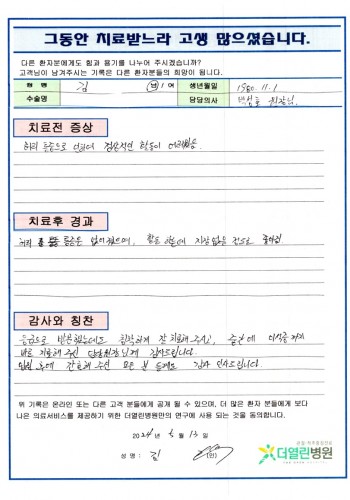 그동안 치료받느라 고생 많으셨습니다.
다른 환자분에게도 힘과 용기를 나누어 주시겠습니까?
고객님이 남겨주시는 기록은 다른 환자분들의 희망이 됩니다.
성 명 김 남 / 여 생년월일 1980. 11. 1
수술명 담당의사 원장님
치료전 증상
허리 통증으로 인하여 정상적인 활동이 어려웠음
치료후 경과
허리 통증은 없어졌으며, 활동
감사와 칭찬
응급으로 방문했는데도 침착하게 잘 치료해 주시고,
바로 치료해 주신 원장님께 감사드립니다.
입원 후에 간호해 주신 모든 분들께도 감사드립니다.
위 기록은 온라인 또는 다른 고객 분들에게 공개 될 수 있으며, 더 많은 환자 분들에게 보다
나은 의료서비스를 제공하기 위한 더열린병원만의 연구에 사용 되는 것을 동의합니다.
2024 년 5 월 13 일
성 명 : 김 (인)
더열린병원